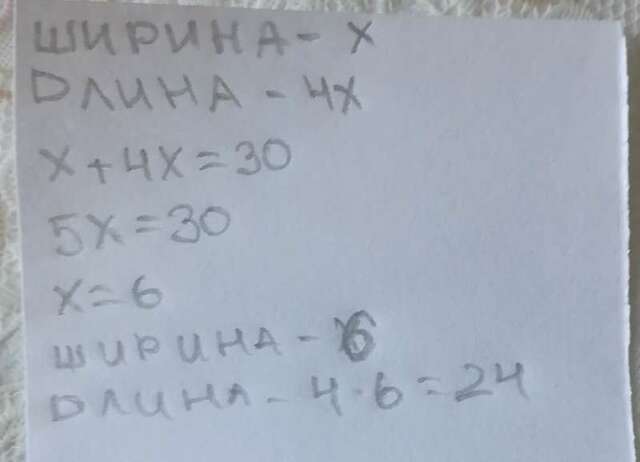 ШИРИНА - X
ДЛИНА - 4X
X + 4X = 30
5X = 30
X = 6
ШИРИНА - 6
ДЛИНА - 4 · 6 = 24